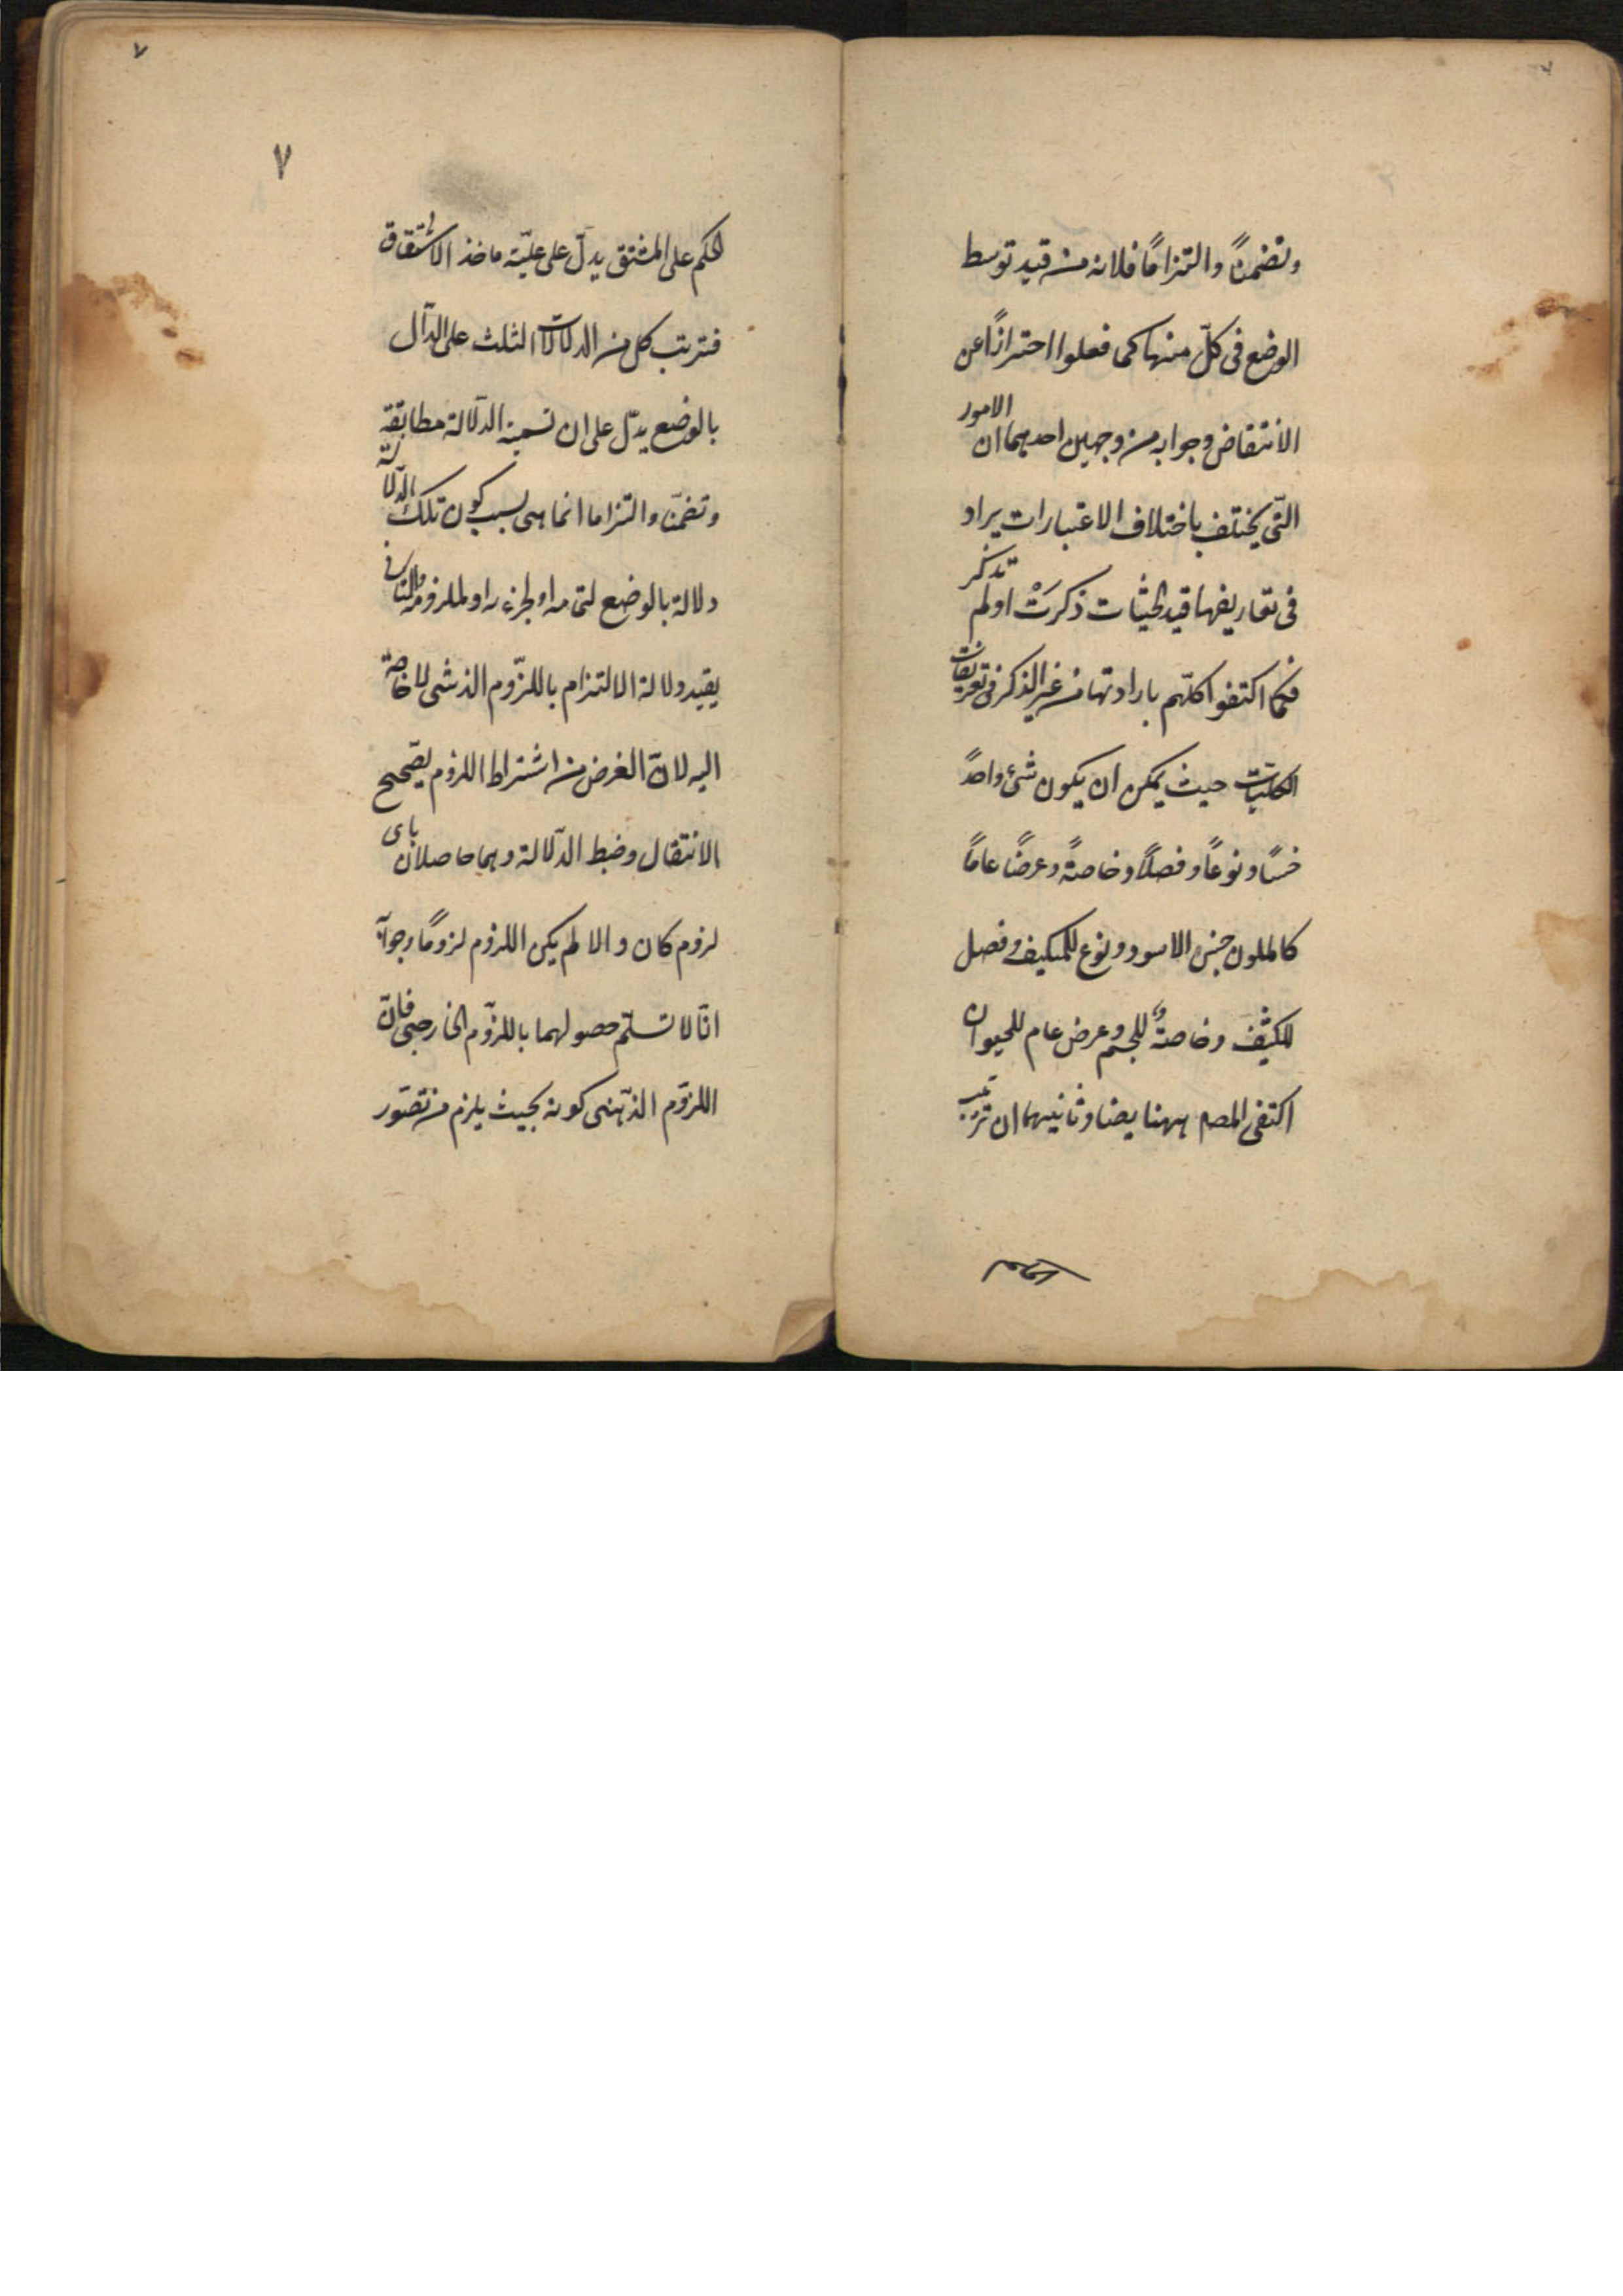 وتضمنًا والتزامًا فلابد من قيد توسط
الوضع فى كلّ منها كما فعلوا احترازًا عن
الانتقاض وجوابه من وجهين احدهما ان الامور
التى يختلف باختلاف الاعتبارات يراد
فى تعاريفها قيد الحيثيات ذكرت اولم تذكر
فكما اكتفوا كلّهم بارادتها من غير الذكر فى تعريفات
الكليّات حيث يمكن ان يكون شئ واحدً
جنسًا ونوعًا وفصلًا وخاصةً وعرضًا عامًا
كالملون جنس الاسود ونوع للمكيف وفصل
للكثيف وخاصة للجسم وعرض عام للحيوان
اكتفى المصم ههنا يضا وثانيهما ان ترتب
٧
٧
الحكم على المشتق يدلّ على عليّة ماخذ الاشتقاق
فترتب كل من الدلالات الثلث على الدّال
بالوضع يدّل على ان تسمية الدّلالة مطابقة
وتضمّنا والتزاما انما هى بسبب كون تلك الدّلالة
دلالة بالوضع لتمامه او لجزءه او لملزومه
يقيد دلالة الالتزام باللزّوم الذهنى لا حاجة
اليه لانّ الغرض من اشتراط اللزوم تصحيح
الانتقال وضبط الدّلالة وهما حاصلان باى
لزوم كان والا لم يكن اللزوم لزومًا وجوابه
انّا لا نسلّم حصولهما باللزّوم الخارجى فانّ
اللزوّم الذّهنى كونه بحيث يلزم من تصّور